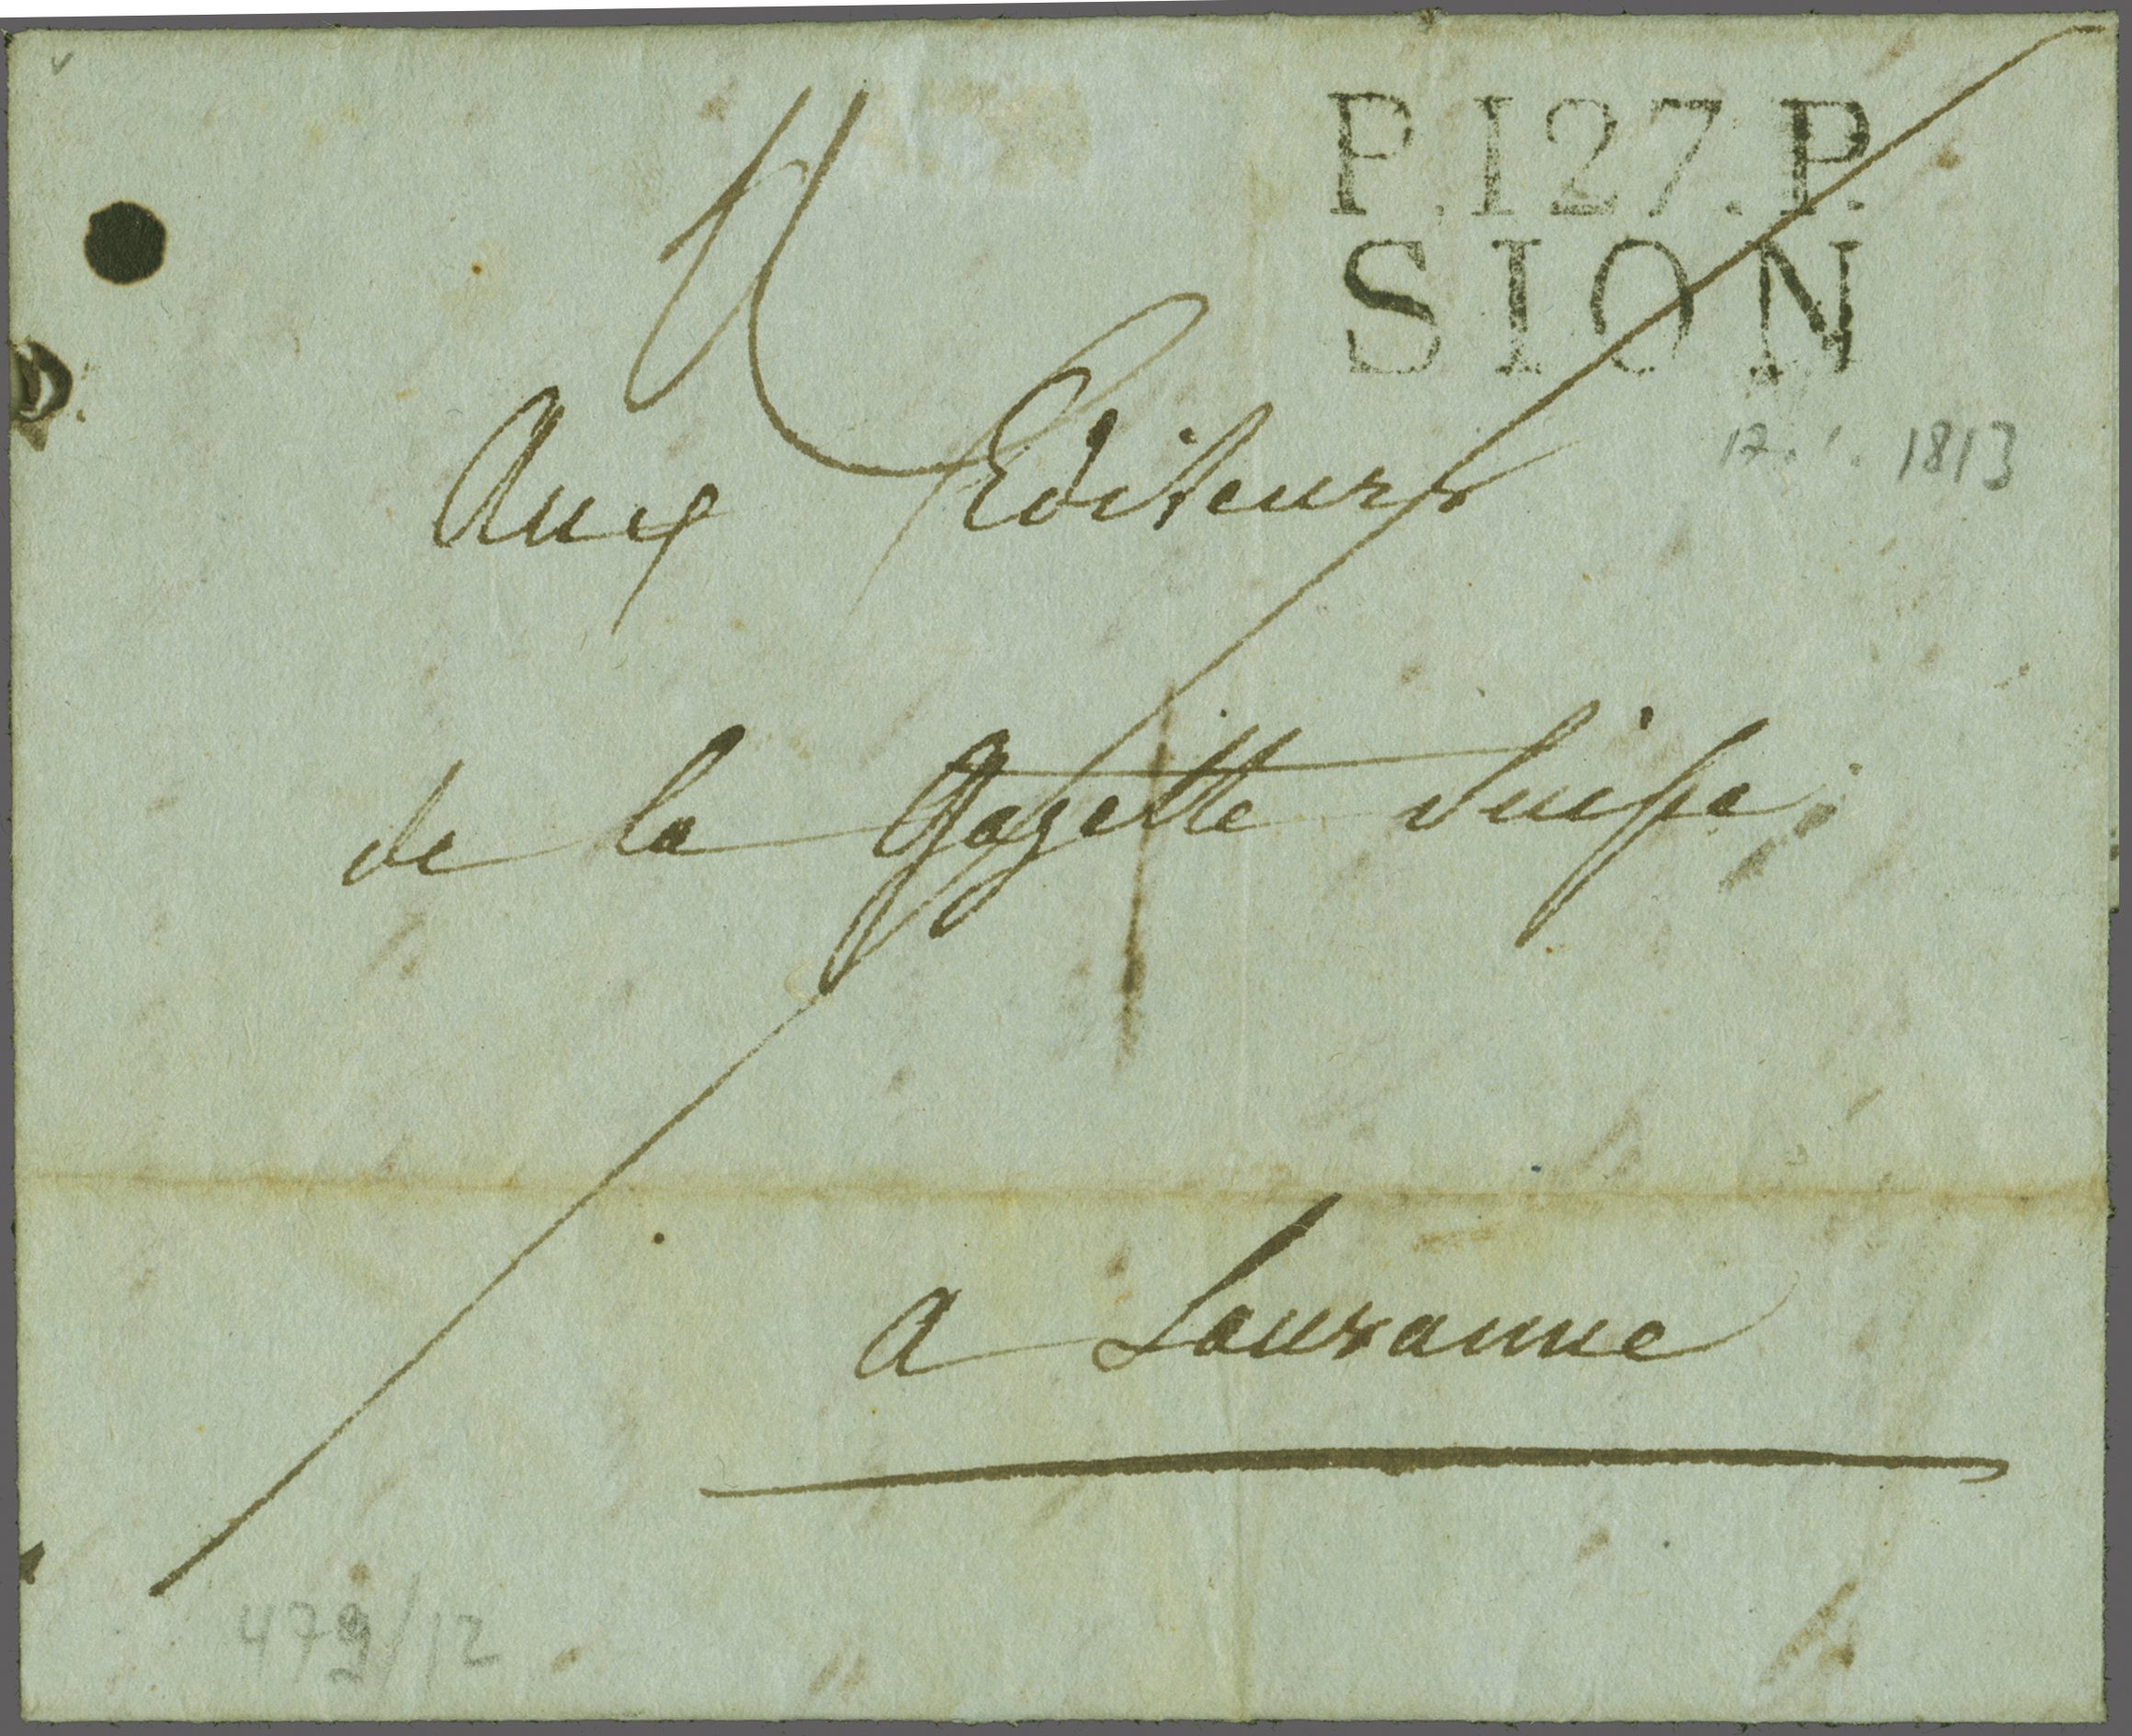 P.127.P.
SION
1813
Aux Editeurs
de la Gazette Suisse
a Lausanne
479/12